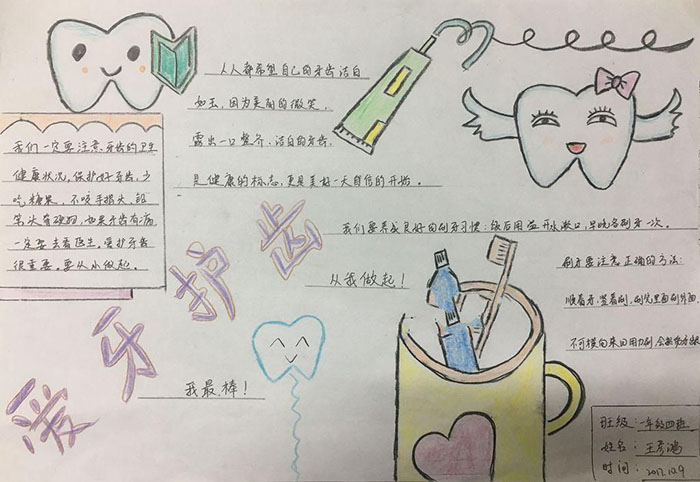 人人都希望自己的牙齿洁白
如玉,因为美丽的微笑,
露出一口整齐、洁白的牙齿,
是健康的标志,更是美好一天自信的开始。
我们一定要注意牙齿的卫生
健康状况,保护好牙齿,少
吃糖果,不咬手指头、铅
笔头等硬物,如果牙齿有病
一定要去看医生。爱护牙齿
很重要。要从小做起。
我们要养成良好的刷牙习惯:饭后用温开水漱口,早晚各刷牙一次。
爱牙护齿
从我做起!
刷牙要注意正确的方法:
顺着牙,竖着刷,刷完里面刷外面,
不可横向来回用力刷,会损伤牙龈
我最棒!
班级:一年级四班
姓名:王彦鸿
时间:2017.10.9